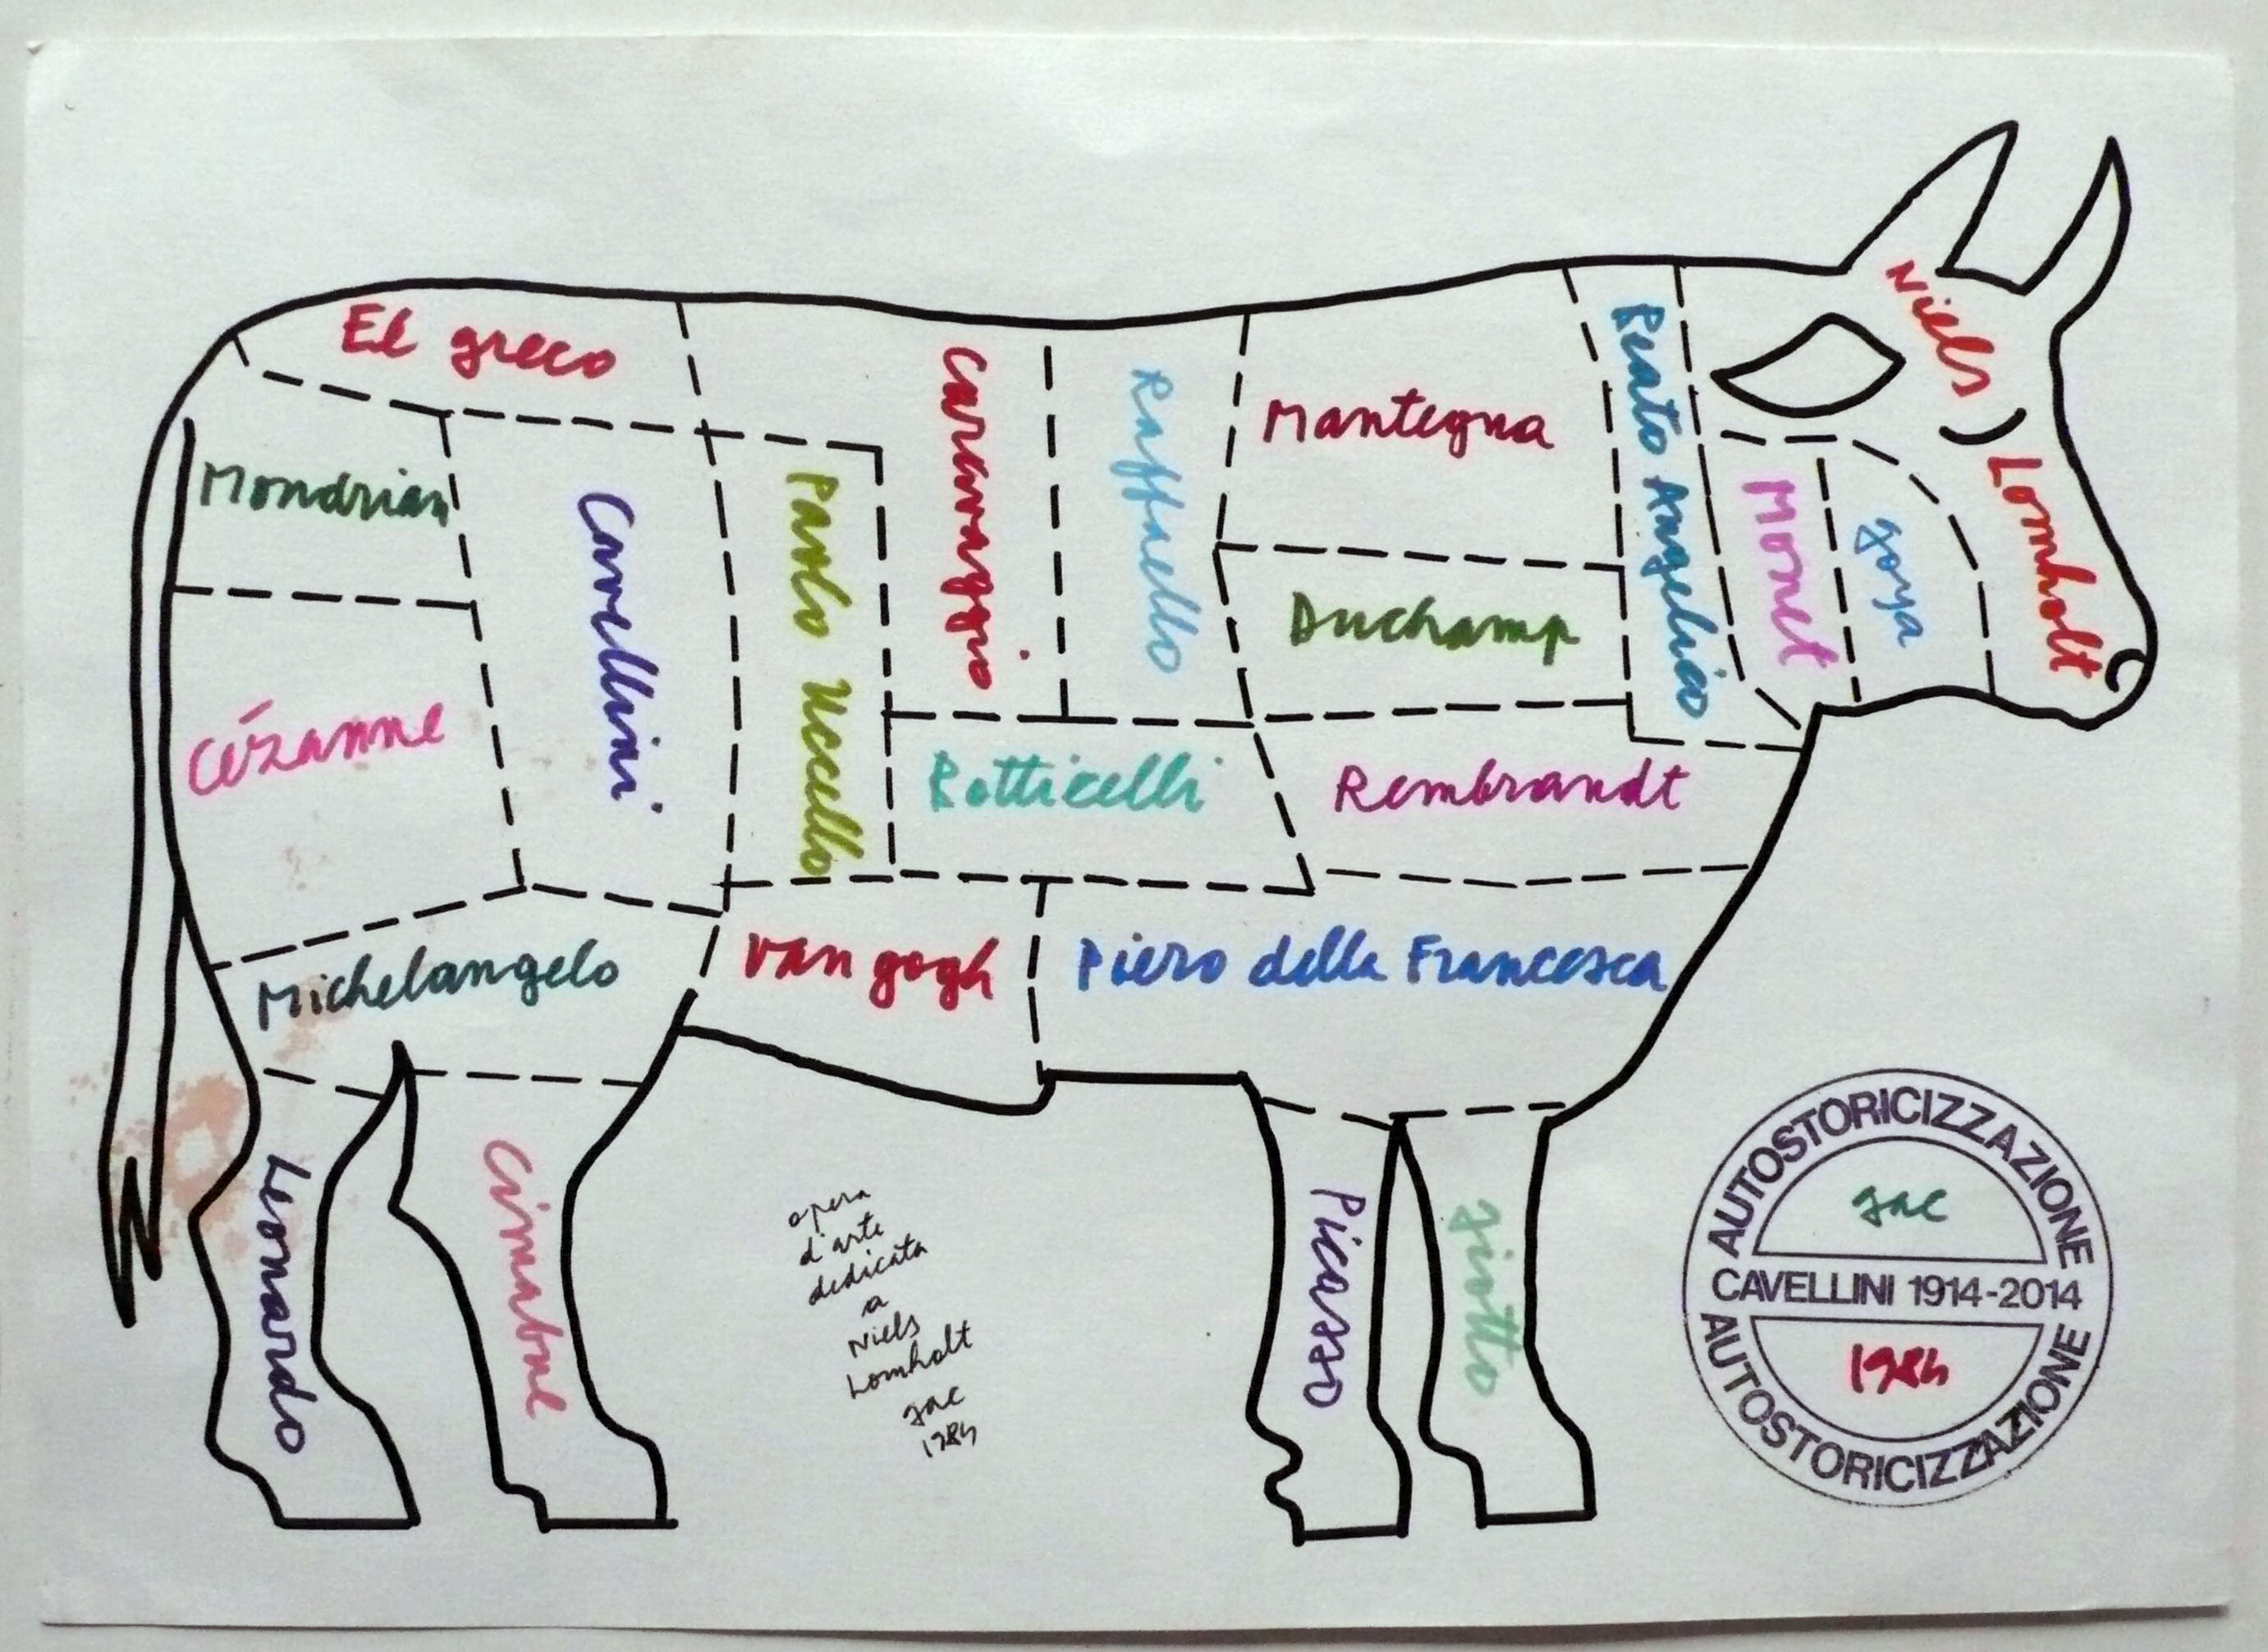 El greco
Mondrian
Cavellini
Paolo Uccello
Caravaggio
Raffaello
Mantegna
Beato Angelico
Niels
Lomholt
Monet
goya
Duchamp
Cézanne
Botticelli
Rembrandt
Michelangelo
Van gogh
Piero della Francesca
Leonardo
Cimabue
Picasso
giotto
opera
d'arte
dedicata
a
Niels
Lomholt
gac
1984
AUTOSTORICIZZAZIONE
gac
CAVELLINI 1914-2014
1984
AUTOSTORICIZZAZIONE